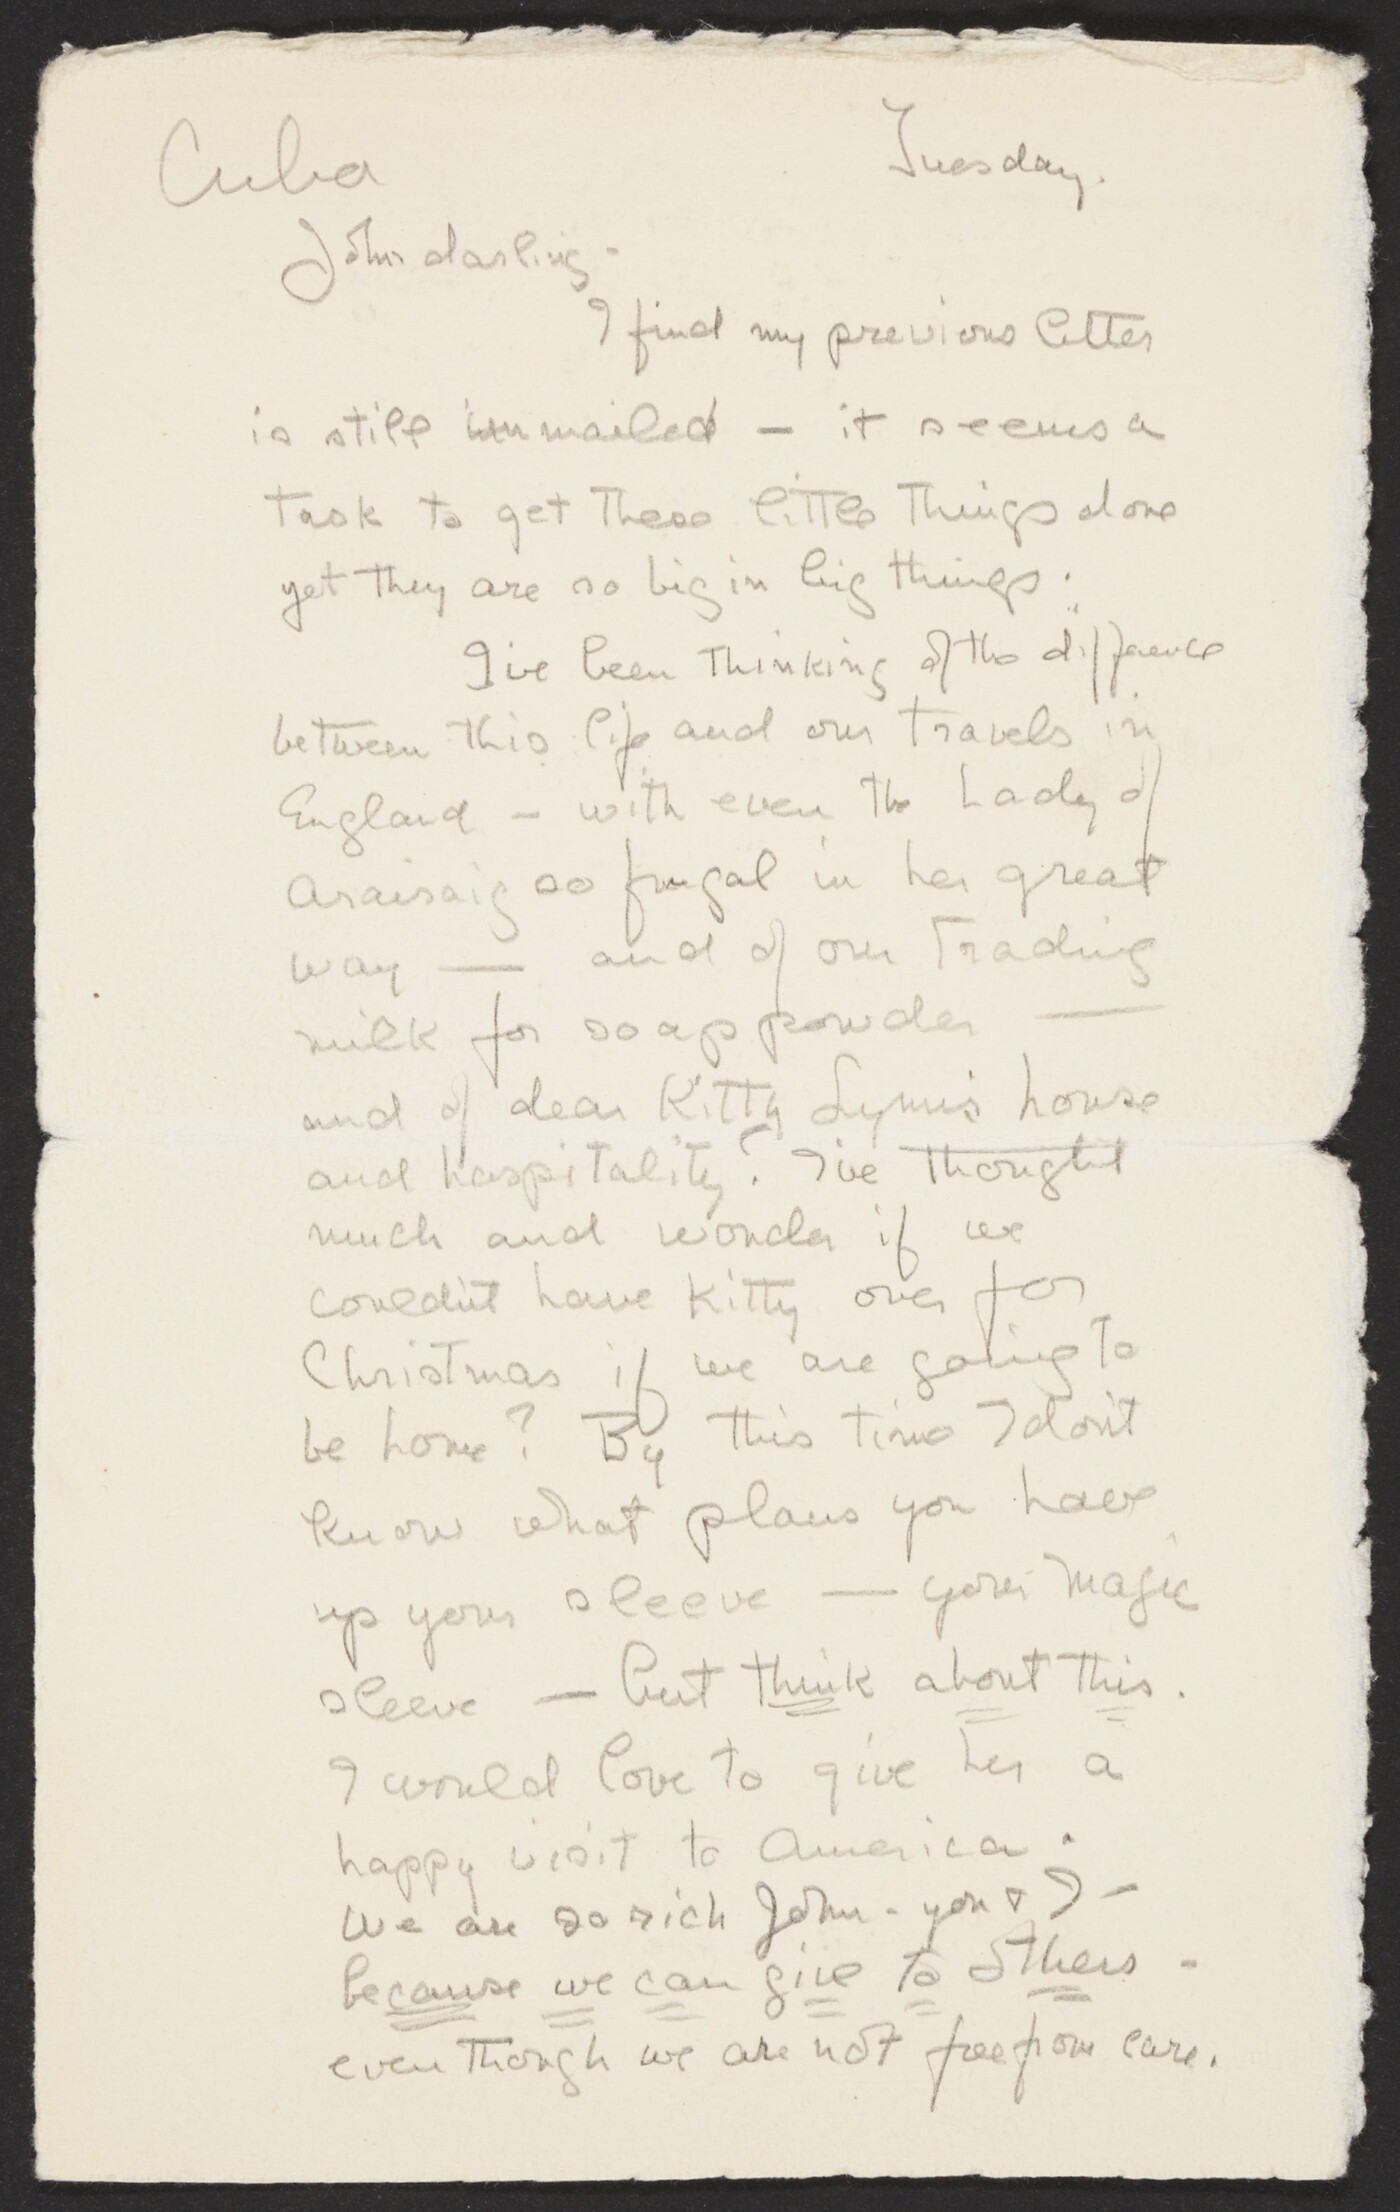 Cuba Tuesday.
John darling -
I find my previous letter
is still unmailed — it seems a
task to get these little things done
yet they are so big in big things.
I've been thinking of the difference
between this life and our travels in
England — with even the Lady of
Araisaig so frugal in her great
way — and of our trading
milk for soap powder —
and of dear Kitty house
and hospitality! I've thought
much and wonder if we
couldn't have Kitty over for
Christmas if we are going to
be home? By this time I don't
know what plans you have
up your sleeve — your magic
sleeve — but think about this.
I would love to give her a
happy visit to America.
We are so rich John - you & I -
because we can give to others -
even though we are not free from care.